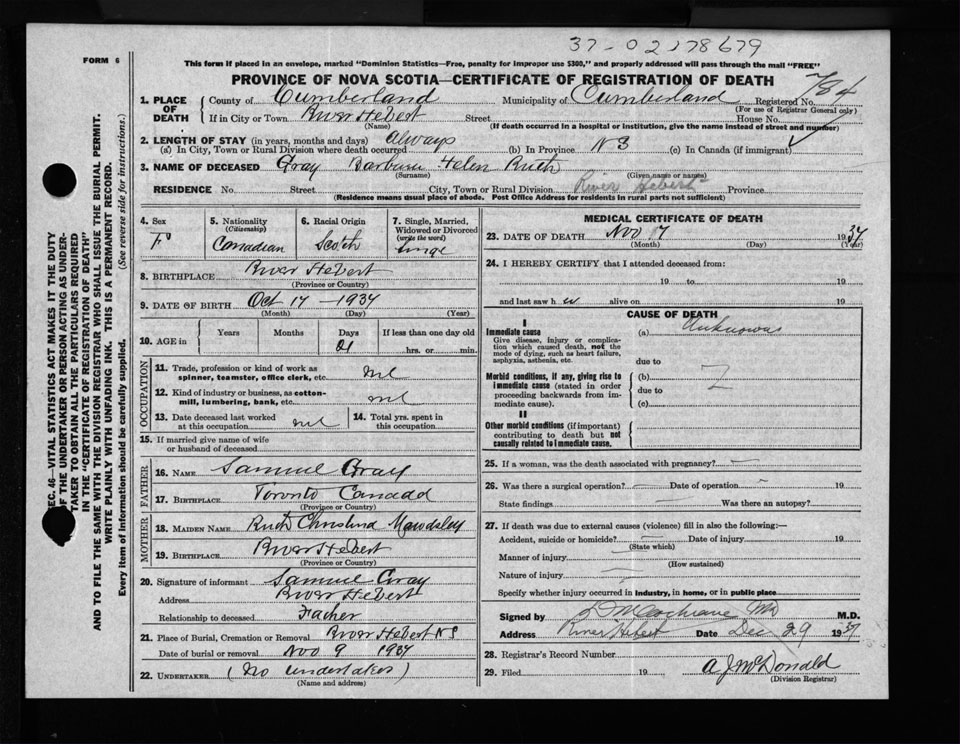 37-02178679
FORM 6
This form if placed in an envelope, marked "Dominion Statistics—Free, penalty for improper use $300," and properly addressed will pass through the mail "FREE"
PROVINCE OF NOVA SCOTIA—CERTIFICATE OF REGISTRATION OF DEATH
784
1. PLACE OF DEATH
County of Cumberland Municipality of Cumberland Registered No.
(For use of Registrar General only)
If in City or Town River Hebert Street House No.
(Name) (If death occurred in a hospital or institution, give the name instead of street and number)
2. LENGTH OF STAY (in years, months and days) always
(a) In City, Town or Rural Division where death occurred (b) In Province N S (c) In Canada (if immigrant)
3. NAME OF DECEASED Gray Helen Ruth
(Surname) (Given name or names)
RESIDENCE No. Street City, Town or Rural Division River Hebert Province
(Residence means usual place of abode. Post Office Address for residents in rural parts not sufficient)
4. Sex 5. Nationality (Citizenship) 6. Racial Origin 7. Single, Married, Widowed or Divorced (write the word)
F Canadian Scotch
8. BIRTHPLACE River Hebert
(Province or Country)
9. DATE OF BIRTH Oct 17 - 1937
(Month) (Day) (Year)
10. AGE in Years Months Days If less than one day old
21 hrs. or min.
OCCUPATION
11. Trade, profession or kind of work as spinner, teamster, office clerk, etc. nil
12. Kind of industry or business, as cotton-mill, lumbering, bank, etc. nil
13. Date deceased last worked at this occupation nil 14. Total yrs. spent in this occupation
15. If married give name of wife or husband of deceased
FATHER
16. NAME Samuel Gray
17. BIRTHPLACE Toronto Canada
(Province or Country)
MOTHER
18. MAIDEN NAME Ruth Christina Mawdsley
19. BIRTHPLACE River Hebert
(Province or Country)
20. Signature of informant Samuel Gray
Address River Hebert
Relationship to deceased Father
21. Place of Burial, Cremation or Removal River Hebert N S
Date of burial or removal Nov 9 1937
22. UNDERTAKER (No undertaker)
(Name and address)
MEDICAL CERTIFICATE OF DEATH
23. DATE OF DEATH Nov 7 1937
(Month) (Day) (Year)
24. I HEREBY CERTIFY that I attended deceased from:
19 to 19
and last saw h alive on 19
CAUSE OF DEATH
I
Immediate cause (a) Unknown
Give disease, injury or complication which caused death, not the mode of dying, such as heart failure, asphyxia, asthenia, etc.
due to
Morbid conditions, if any, giving rise to immediate cause (stated in order proceeding backwards from immediate cause).
(b)
due to
(c)
II
Other morbid conditions (if important) contributing to death but not causally related to immediate cause.
25. If a woman, was the death associated with pregnancy?
26. Was there a surgical operation? Date of operation 19
State findings Was there an autopsy?
27. If death was due to external causes (violence) fill in also the following:—
Accident, suicide or homicide? Date of injury 19
(State which)
Manner of injury
(How sustained)
Nature of injury
Specify whether injury occurred in industry, in home, or in public place
Signed by Cochrane MD M.D.
Address River Hebert Date Dec 29 1937
28. Registrar's Record Number
29. Filed 19 A J McDonald
(Division Registrar)
SEC. 46—VITAL STATISTICS ACT MAKES IT THE DUTY
OF THE UNDERTAKER OR PERSON ACTING AS UNDER-
TAKER TO OBTAIN ALL THE PARTICULARS REQUIRED
IN THE "CERTIFICATE OF REGISTRATION OF DEATH"
AND TO FILE THE SAME WITH THE DIVISION REGISTRAR WHO SHALL ISSUE THE BURIAL PERMIT.
WRITE PLAINLY WITH UNFADING INK. THIS IS A PERMANENT RECORD.
Every item of information should be carefully supplied. (See reverse side for instructions.)